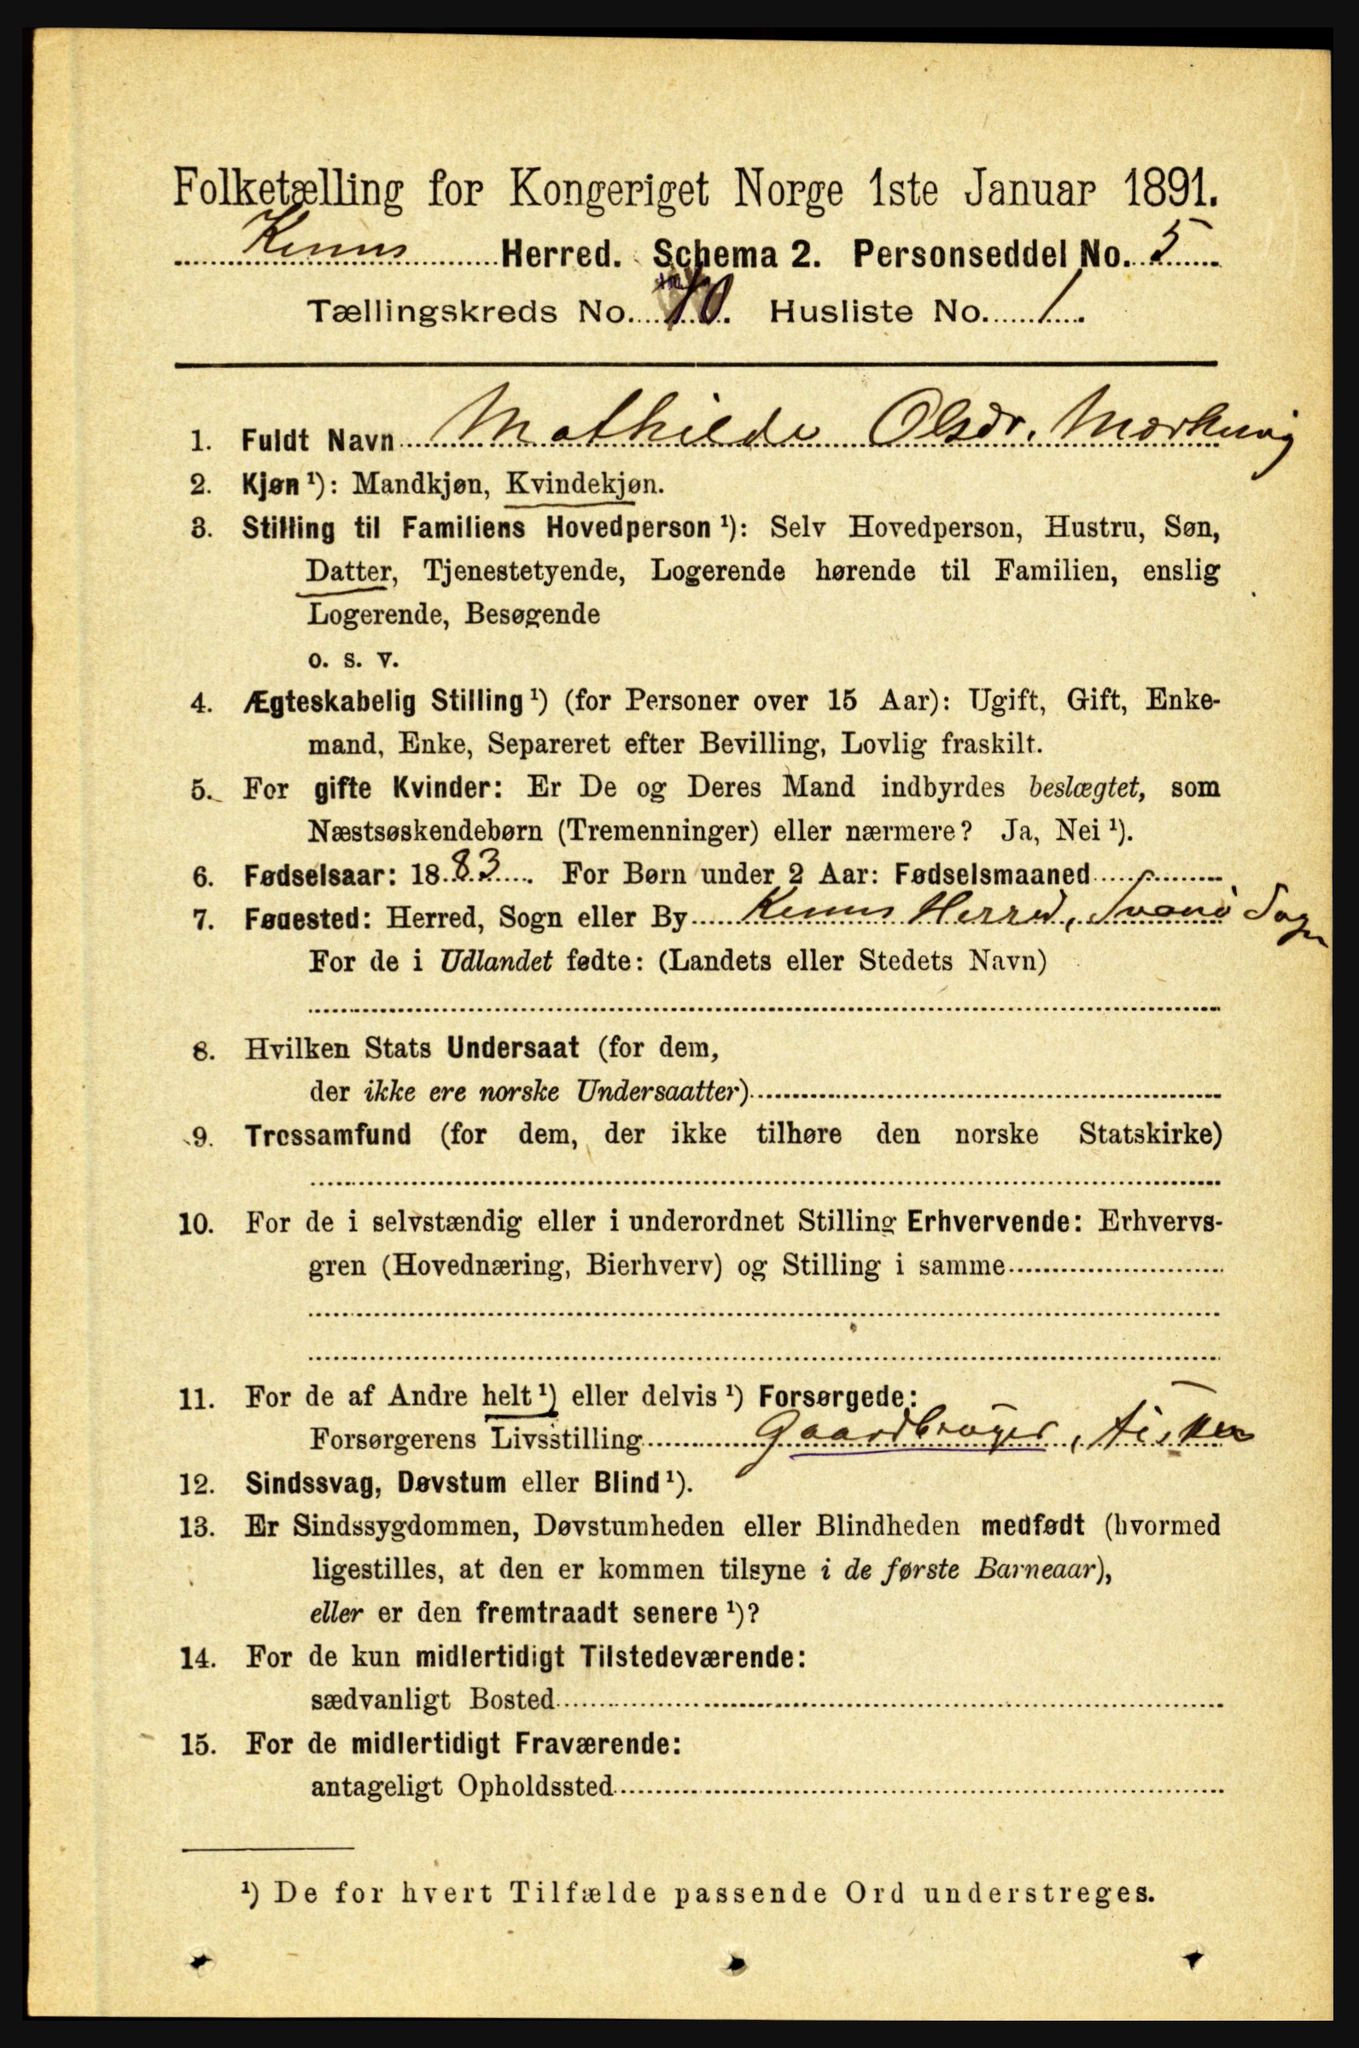 Folketælling for Kongeriget Norge 1ste Januar 1891.
Kinns Herred. Schema 2. Personseddel No. 5
Tællingskreds No. 10. Husliste No. 1.
1. Fuldt Navn Mathilde Olsdr. Markvig
2. Kjøn ¹): Mandkjøn, Kvindekjøn.
3. Stilling til Familiens Hovedperson ¹): Selv Hovedperson, Hustru, Søn,
Datter, Tjenestetyende, Logerende hørende til Familien, enslig
Logerende, Besøgende
o. s. v.
4. Ægteskabelig Stilling ¹) (for Personer over 15 Aar): Ugift, Gift, Enke-
mand, Enke, Separeret efter Bevilling, Lovlig fraskilt.
5. For gifte Kvinder: Er De og Deres Mand indbyrdes beslægtet, som
Næstsøskendebørn (Tremenninger) eller nærmere? Ja, Nei ¹).
6. Fødselsaar: 1883. For Børn under 2 Aar: Fødselsmaaned
7. Fødested: Herred, Sogn eller By Kinns Herred, Svanø Sogn
For de i Udlandet fødte: (Landets eller Stedets Navn)
8. Hvilken Stats Undersaat (for dem,
der ikke ere norske Undersaatter)
9. Trossamfund (for dem, der ikke tilhøre den norske Statskirke)
10. For de i selvstændig eller i underordnet Stilling Erhvervende: Erhvervs-
gren (Hovednæring, Bierhverv) og Stilling i samme
11. For de af Andre helt ¹) eller delvis ¹) Forsørgede:
Forsørgerens Livsstilling Gaardbruger, Fisker
12. Sindssvag, Døvstum eller Blind ¹).
13. Er Sindssygdommen, Døvstumheden eller Blindheden medfødt (hvormed
ligestilles, at den er kommen tilsyne i de første Barneaar),
eller er den fremtraadt senere ¹)?
14. For de kun midlertidigt Tilstedeværende:
sædvanligt Bosted
15. For de midlertidigt Fraværende:
antageligt Opholdssted
¹) De for hvert Tilfælde passende Ord understreges.